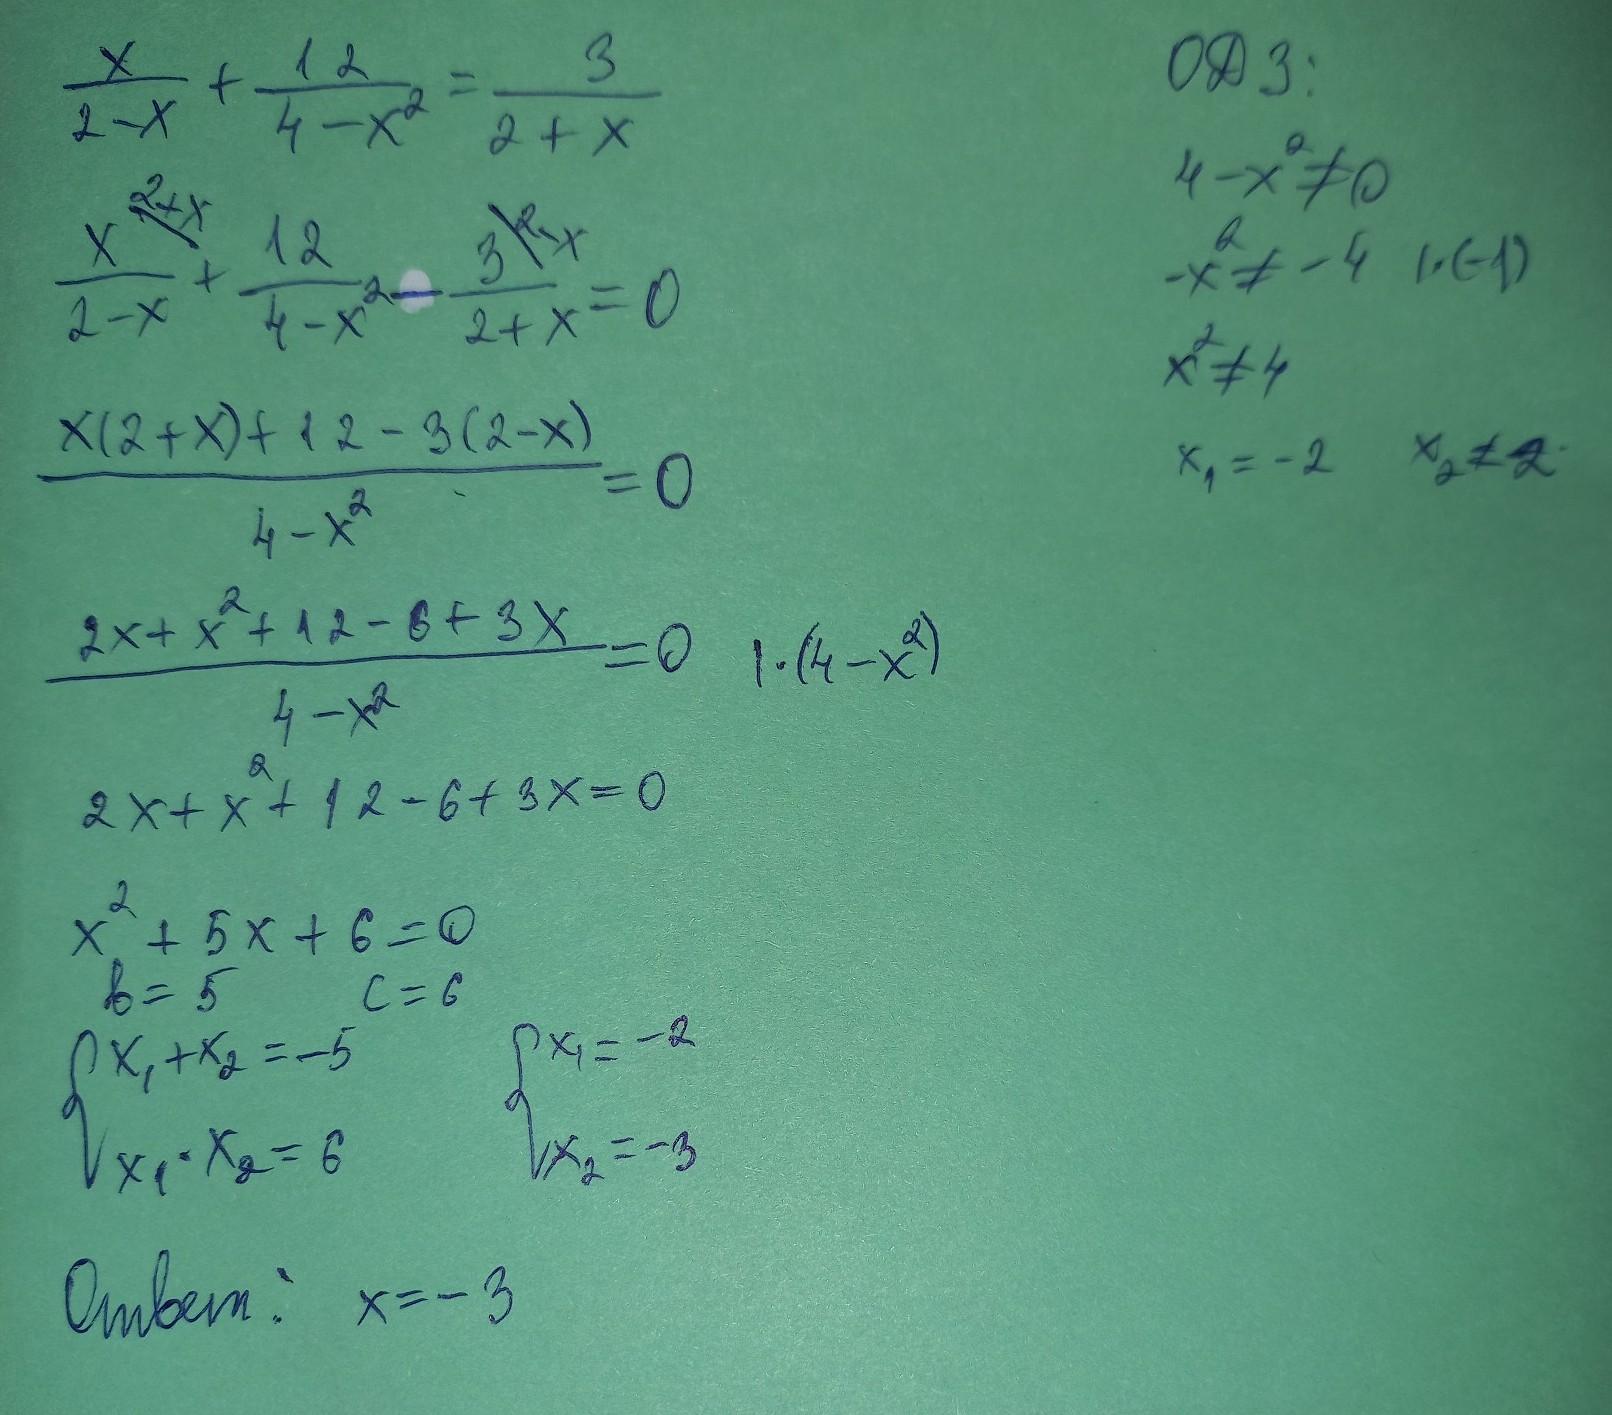 x/(2-x) + 12/(4-x²) = 3/(2+x)
x^(2+x)/(2-x) + 12/(4-x²) - 3^(2-x)/(2+x) = 0
(x(2+x)+12-3(2-x))/(4-x²) = 0
(2x+x²+12-6+3x)/(4-x²) = 0 |·(4-x²)
2x+x²+12-6+3x=0
x²+5x+6=0
b=5 c=6
{x₁+x₂=-5 {x₁=-2
x₁·x₂=6 x₂=-3
Ответ: x=-3
ОДЗ:
4-x²≠0
-x²≠-4 |·(-1)
x²≠4
x₁=-2 x₂≠2